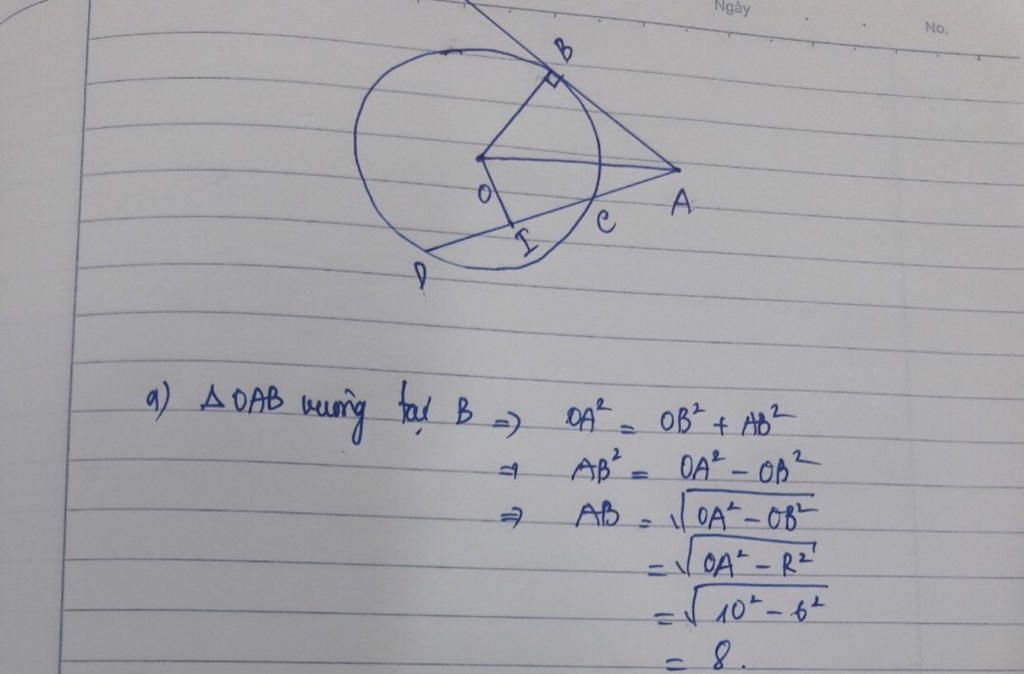 Ngày
No.
B
O
A
C
I
D
a) Δ OAB vuông tại B => OA² = OB² + AB²
=> AB² = OA² - OB²
=> AB = √(OA² - OB²)
= √(OA² - R²)
= √(10² - 6²)
= 8.